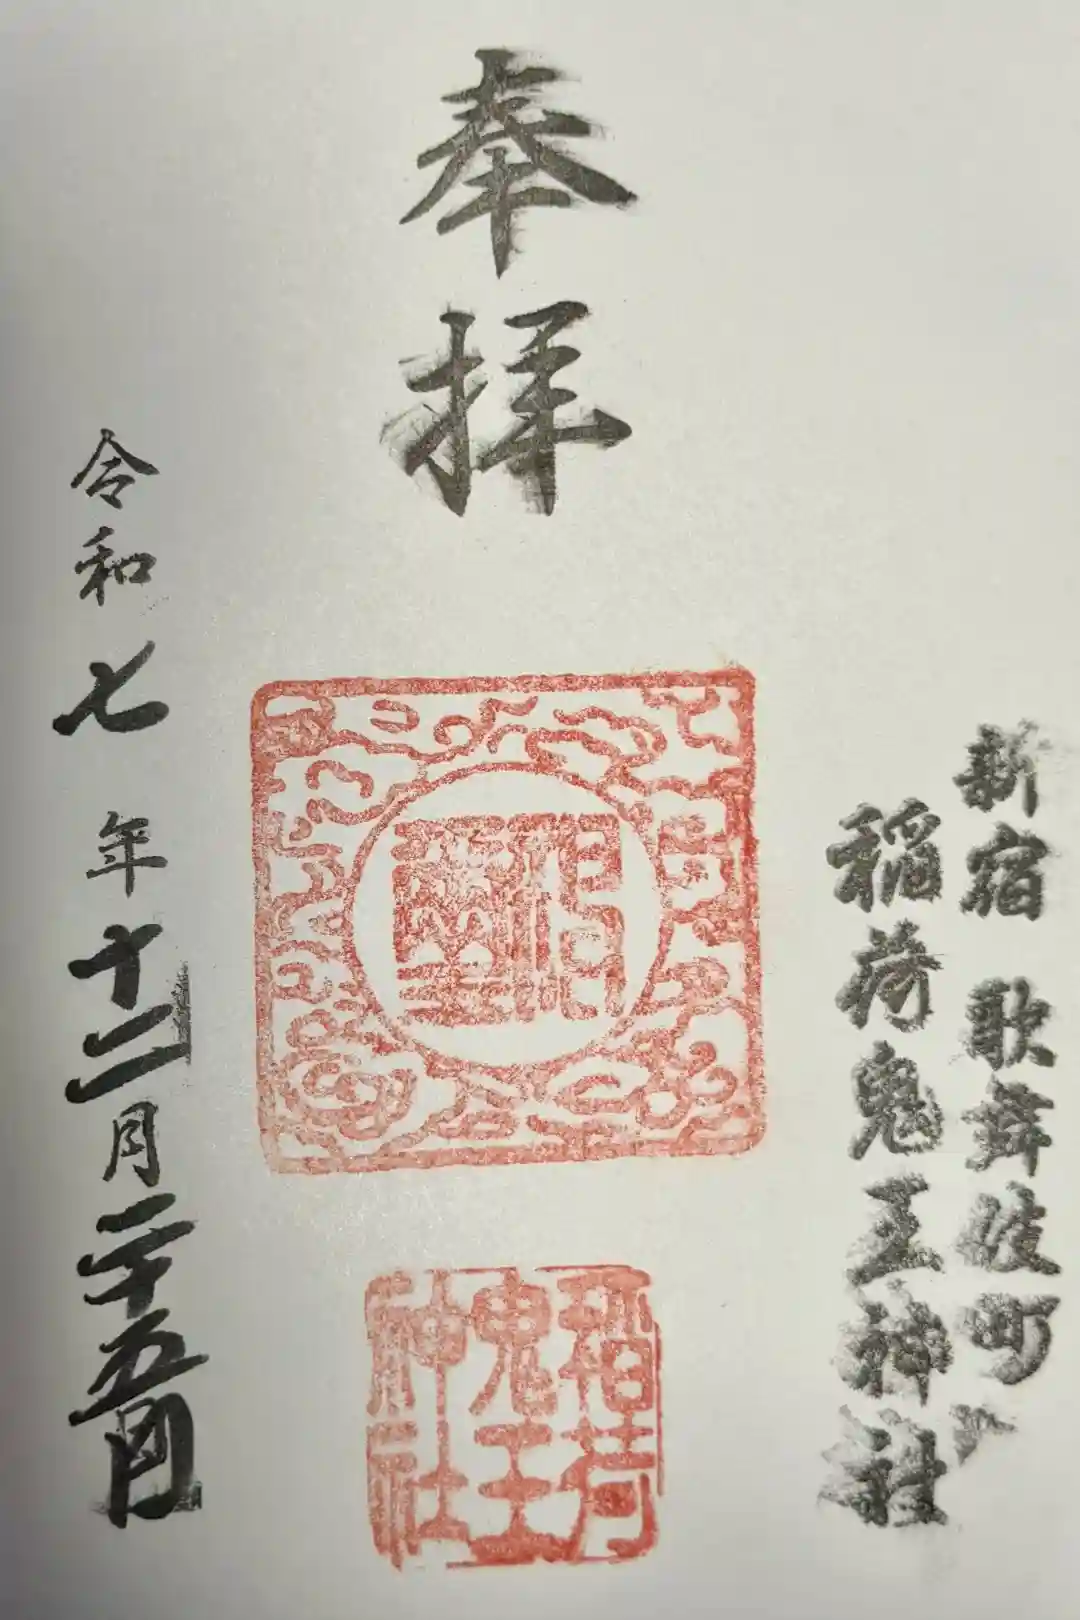 新宿 歌舞岐町
稲荷鬼王神社
奉拝
稲荷
鬼王
神社
令和七年十二月二十五日